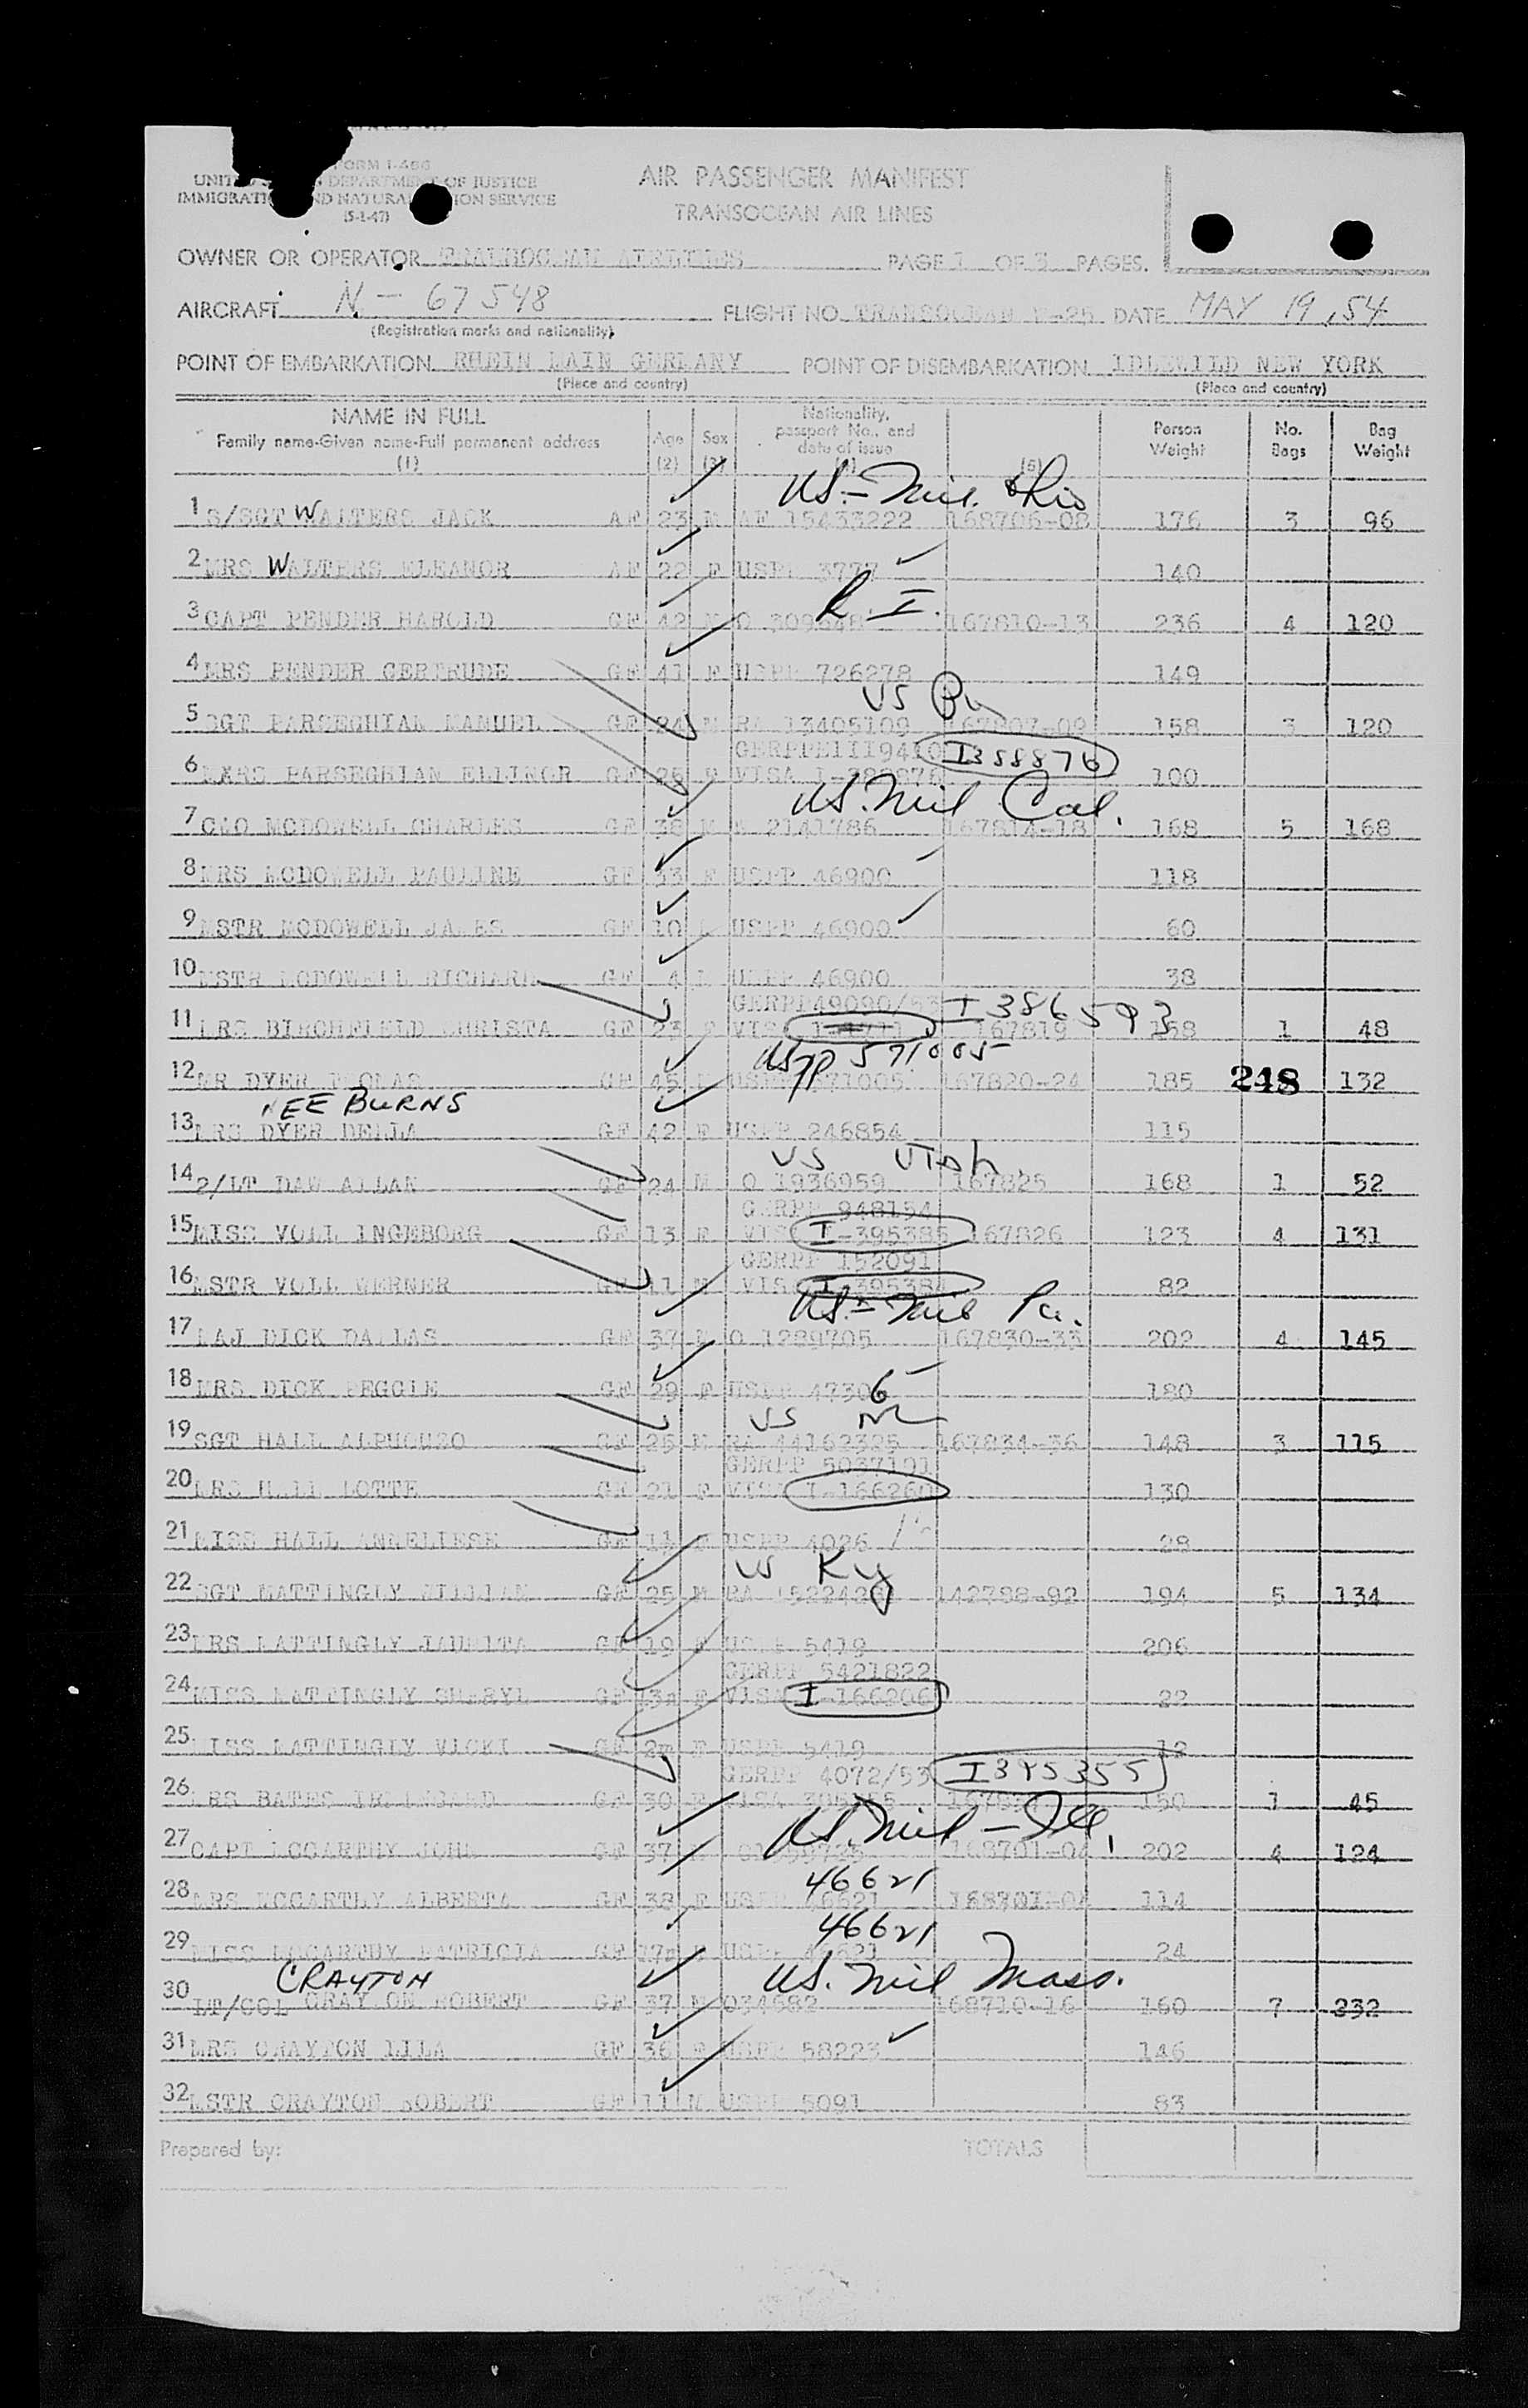 FORM I-466
UNITED DEPARTMENT OF JUSTICE
IMMIGRATION AND NATURALIZATION SERVICE
(5-1-47)
AIR PASSENGER MANIFEST
TRANSOCEAN AIR LINES
OWNER OR OPERATOR TRANSOCEAN AIRLINES PAGE 1 OF 3 PAGES.
AIRCRAFT N-67548 FLIGHT NO. TRANSOCEAN -25 DATE MAY 19, 54
(Registration marks and nationality)
POINT OF EMBARKATION RHEIN MAIN GERMANY POINT OF DISEMBARKATION IDLEWILD NEW YORK
(Place and country) (Place and country)
NAME IN FULL Age Sex Nationality, passport No., and date of issue Person Weight No. Bags Bag Weight
Family name-Given name-Full permanent address
(1) (2) (3) (4) (5)
US.-Mil. Ohio
1 S/SGT WALTERS JACK AF 23 M AF 15433222 168706-08 176 3 96
2 MRS WALTERS ELEANOR AF 22 F USPP 3777 140
R.I.
3 CAPT PENDER HAROLD GF 42 M O 309648 167810-13 236 4 120
4 MRS PENDER GERTRUDE GF 41 F USPP 726278 149
US Pa
5 SGT PARSEGHIAN MANUEL GF 24 M RA 13405109 167807-09 158 3 120
GERPPEIII9410 I388876
6 MRS PARSEGHIAN ELLINOR GF 26 F VISA I-388876 100
US. Mil Cal.
7 CWO MCDOWELL CHARLES GF 38 M W 2141786 167814-18 168 5 168
8 MRS MCDOWELL PAULINE GF 33 F USPP 46900 118
9 MSTR MCDOWELL JAMES GF 10 M USPP 46900 60
10 MSTR MCDOWELL RICHARD GF 4 M USPP 46900 38
GERPP49090/53 I386593
11 MRS BIRCHFIELD CHRISTA GF 23 F VISA 167819 158 1 48
USPP 571005
12 MR DYER THOMAS GF 45 M USPP 571005 167820-24 185 248 132
NEE BURNS
13 MRS DYER DELLA GF 42 F USPP 246854 115
US UTAH
14 2/LT DAW ALLAN GF 24 M O 1936959 167825 168 1 52
GERPP 948154
15 MISS VOLL INGEBORG GF 13 F VISA I-395385 167826 123 4 131
GERPP 152091
16 MSTR VOLL WERNER GF 11 M VISA I-395384 82
US.-Mil Pa.
17 MAJ DICK DALLAS GF 37 M O 1289705 167830-33 202 4 145
18 MRS DICK PEGGIE GF 29 F USPP 47306 180
US
19 SGT HALL ALPHONZO GF 25 M RA 44162325 167834-36 148 3 115
GERPP 5037191
20 MRS HALL LOTTE GF 21 F VISA I-166260 130
21 MISS HALL ANNELIESE GF 1½ F USPP 4026 28
US Ky
22 SGT MATTINGLY WILLIAM GF 25 M RA 142788-92 194 5 134
23 MRS MATTINGLY JAUNITA GF 19 F USPP 5419 206
GERPP 5421822
24 MISS MATTINGLY SHERYL GF F VISA I-166206 22
25 MISS MATTINGLY VICKI GF 2m F USPP 5419 12
GERPP 4072/53 I395355
26 MRS BATES IRMINGARD GF 30 F VISA 395355 150 1 45
US. Mil - Ill.
27 CAPT MCCARTHY JOHN GF 37 M 168701-04 202 4 124
46621
28 MRS MCCARTHY ALBERTA GF 38 F USPP 46621 168701-04 114
46621
29 MISS MCCARTHY PATRICIA GF 17m F USPP 46621 24
CRAYTON US. Mil Mass.
30 LT/COL ROBERT GF 37 M 034682 168710-16 160 7 232
31 MRS CRAYTON LILA GF 36 F USPP 58223 146
32 MSTR CRAYTON ROBERT GF 11 M USPP 5091 83
Prepared by: TOTALS